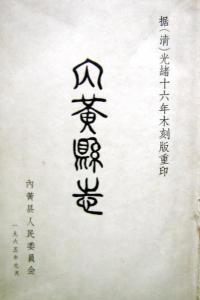 据(清)光緒十六年木刻版重印
内黃縣志
内黃县人民委員会
一九六五年元月